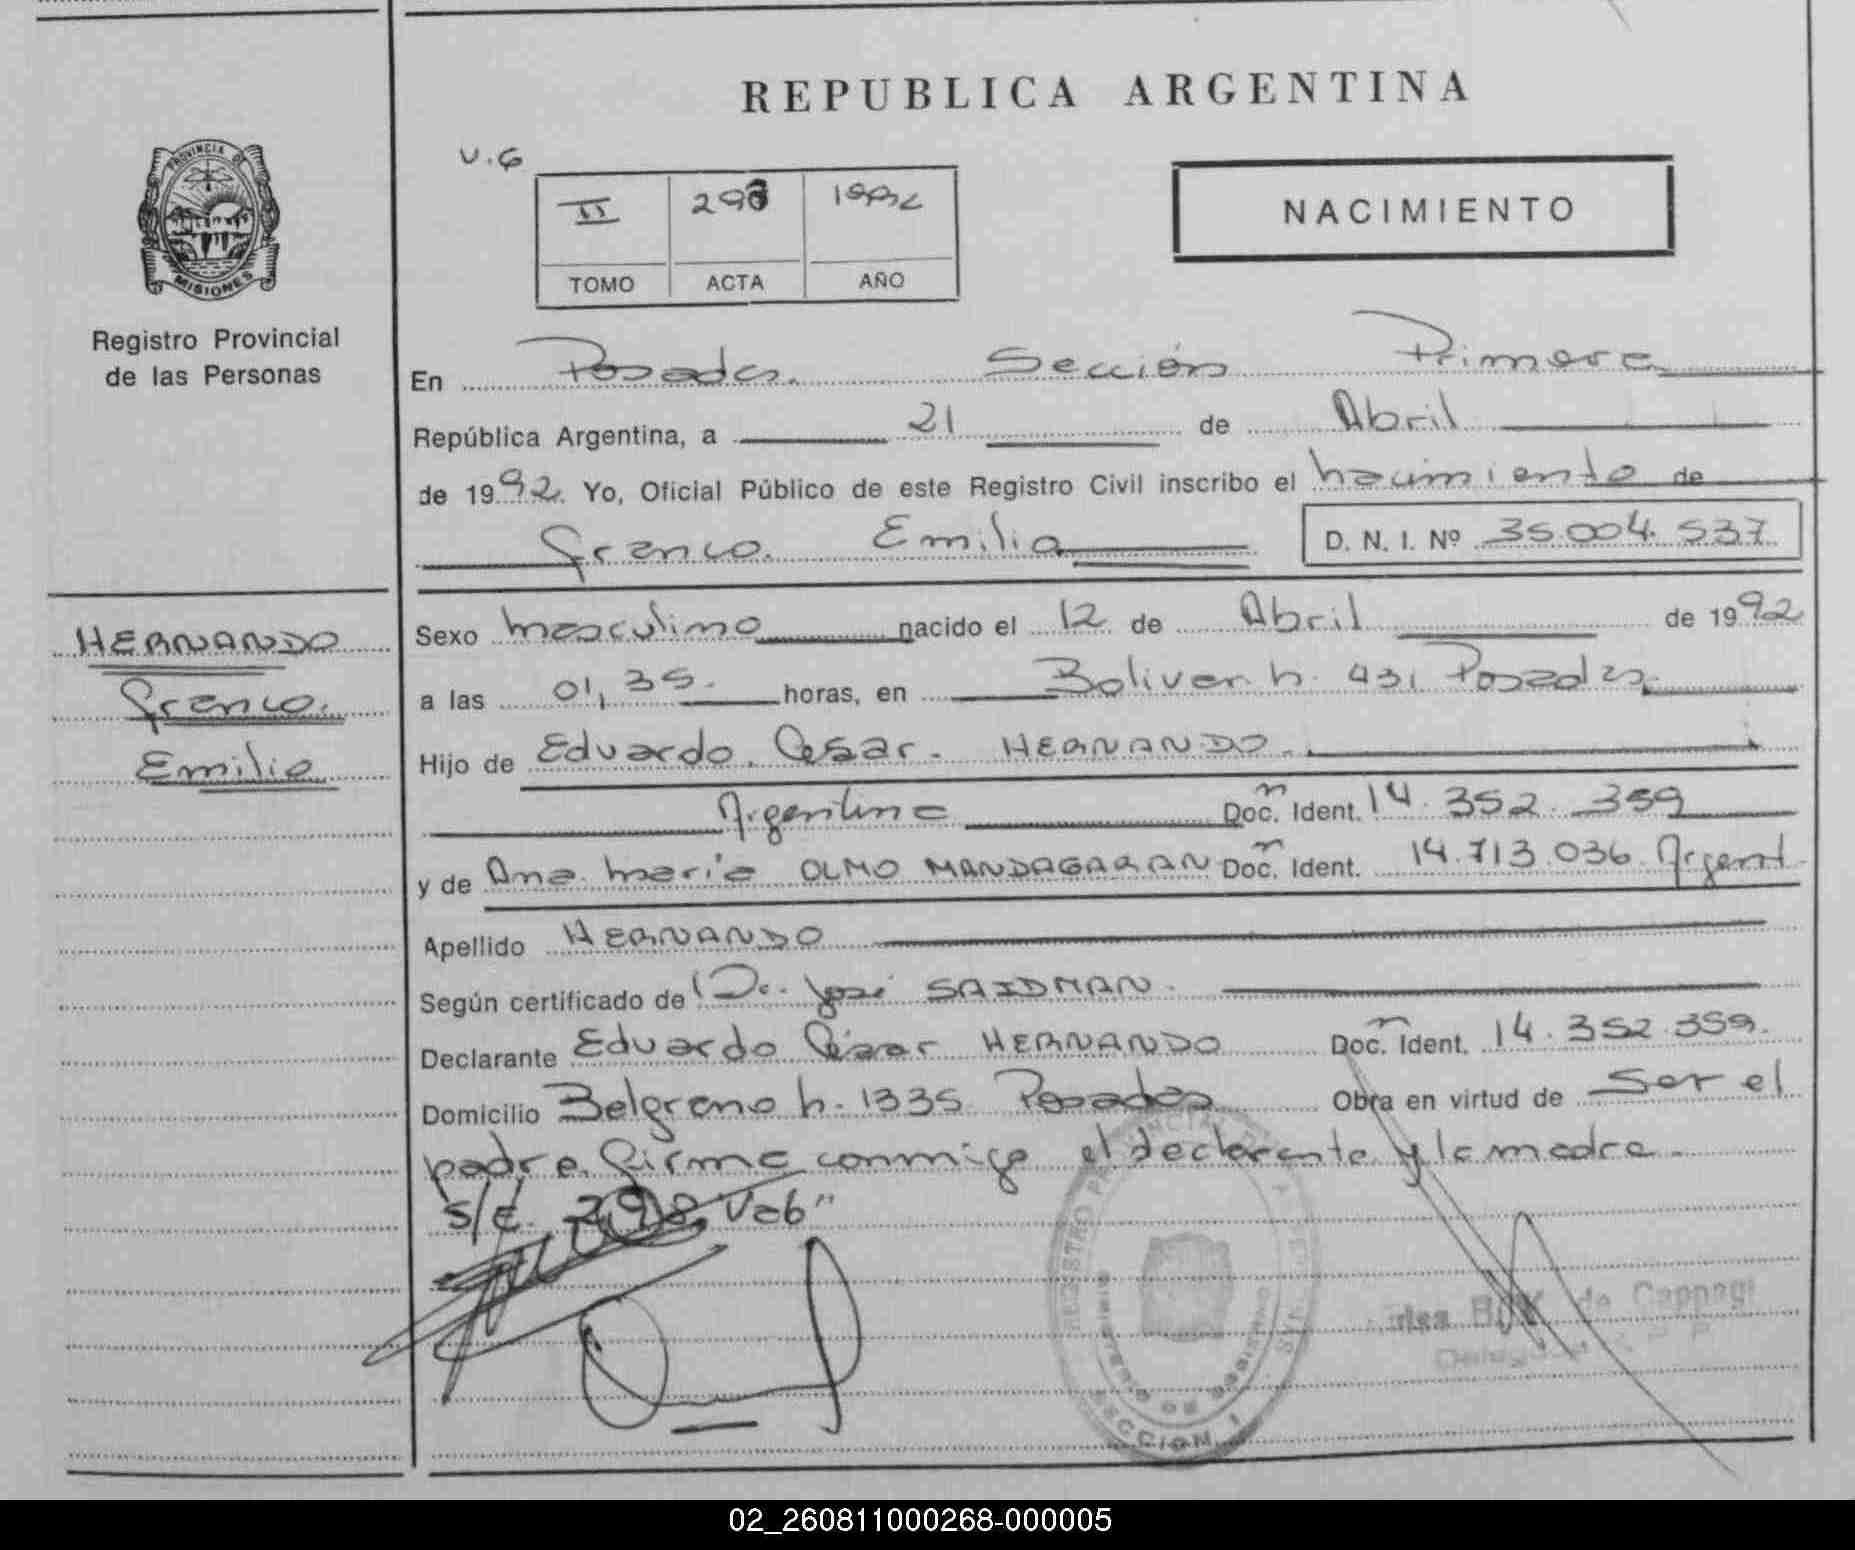 REPUBLICA ARGENTINA
PROVINCIA DE MISIONES
Registro Provincial
de las Personas
V.6
II 298 1992
TOMO ACTA AÑO
NACIMIENTO
En Posadas. Sección Primera
República Argentina, a 21 de Abril
de 1992. Yo, Oficial Público de este Registro Civil inscribo el nacimiento de
Franco. Emilio
D. N. I. Nº 35.004.537
HERNANDO
Franco.
Emilio
Sexo masculino nacido el 12 de Abril de 1992
a las 01,35. horas, en Bolivar n. 431 Posadas.
Hijo de Eduardo. Cesar. HERNANDO.
Argentino Doc. Ident. 14.352.359
y de Ana María OLMO MANDAGARAN Doc. Ident. 14.713.036. Argent.
Apellido HERNANDO
Según certificado de Dr. José SAIDMAN.
Declarante Eduardo César HERNANDO Doc. Ident. 14.352.359.
Domicilio Belgrano n. 1335 Posadas Obra en virtud de Ser el
padre. Firma conmigo el declarante y la madre.
S/E. 298. Vale"
REGISTRO PROVINCIAL DE LAS PERSONAS
SECCION 1
de Cappagi
02_260811000268-000005